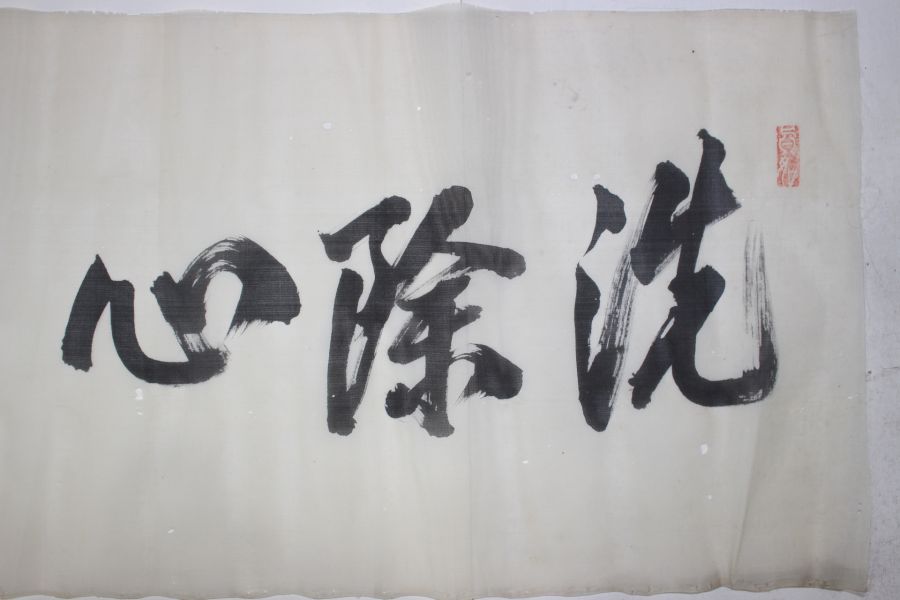 洗除心